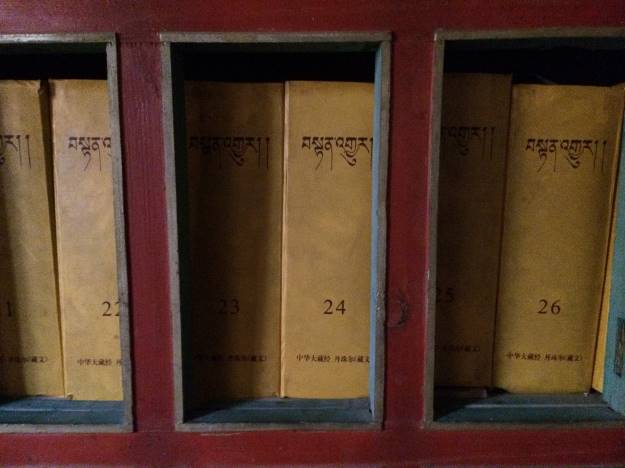 བསྟན་འགྱུར།
22
中华大藏经 丹珠
བསྟན་འགྱུར།།
23
中华大藏经 丹珠尔(藏文)
བསྟན་འགྱུར།
24
中华大藏经 丹珠尔(藏文
འགྱུར།།
25
丹珠尔(藏文)
བསྟན་འགྱུར།།
26
中华大藏经 丹珠尔(藏文)